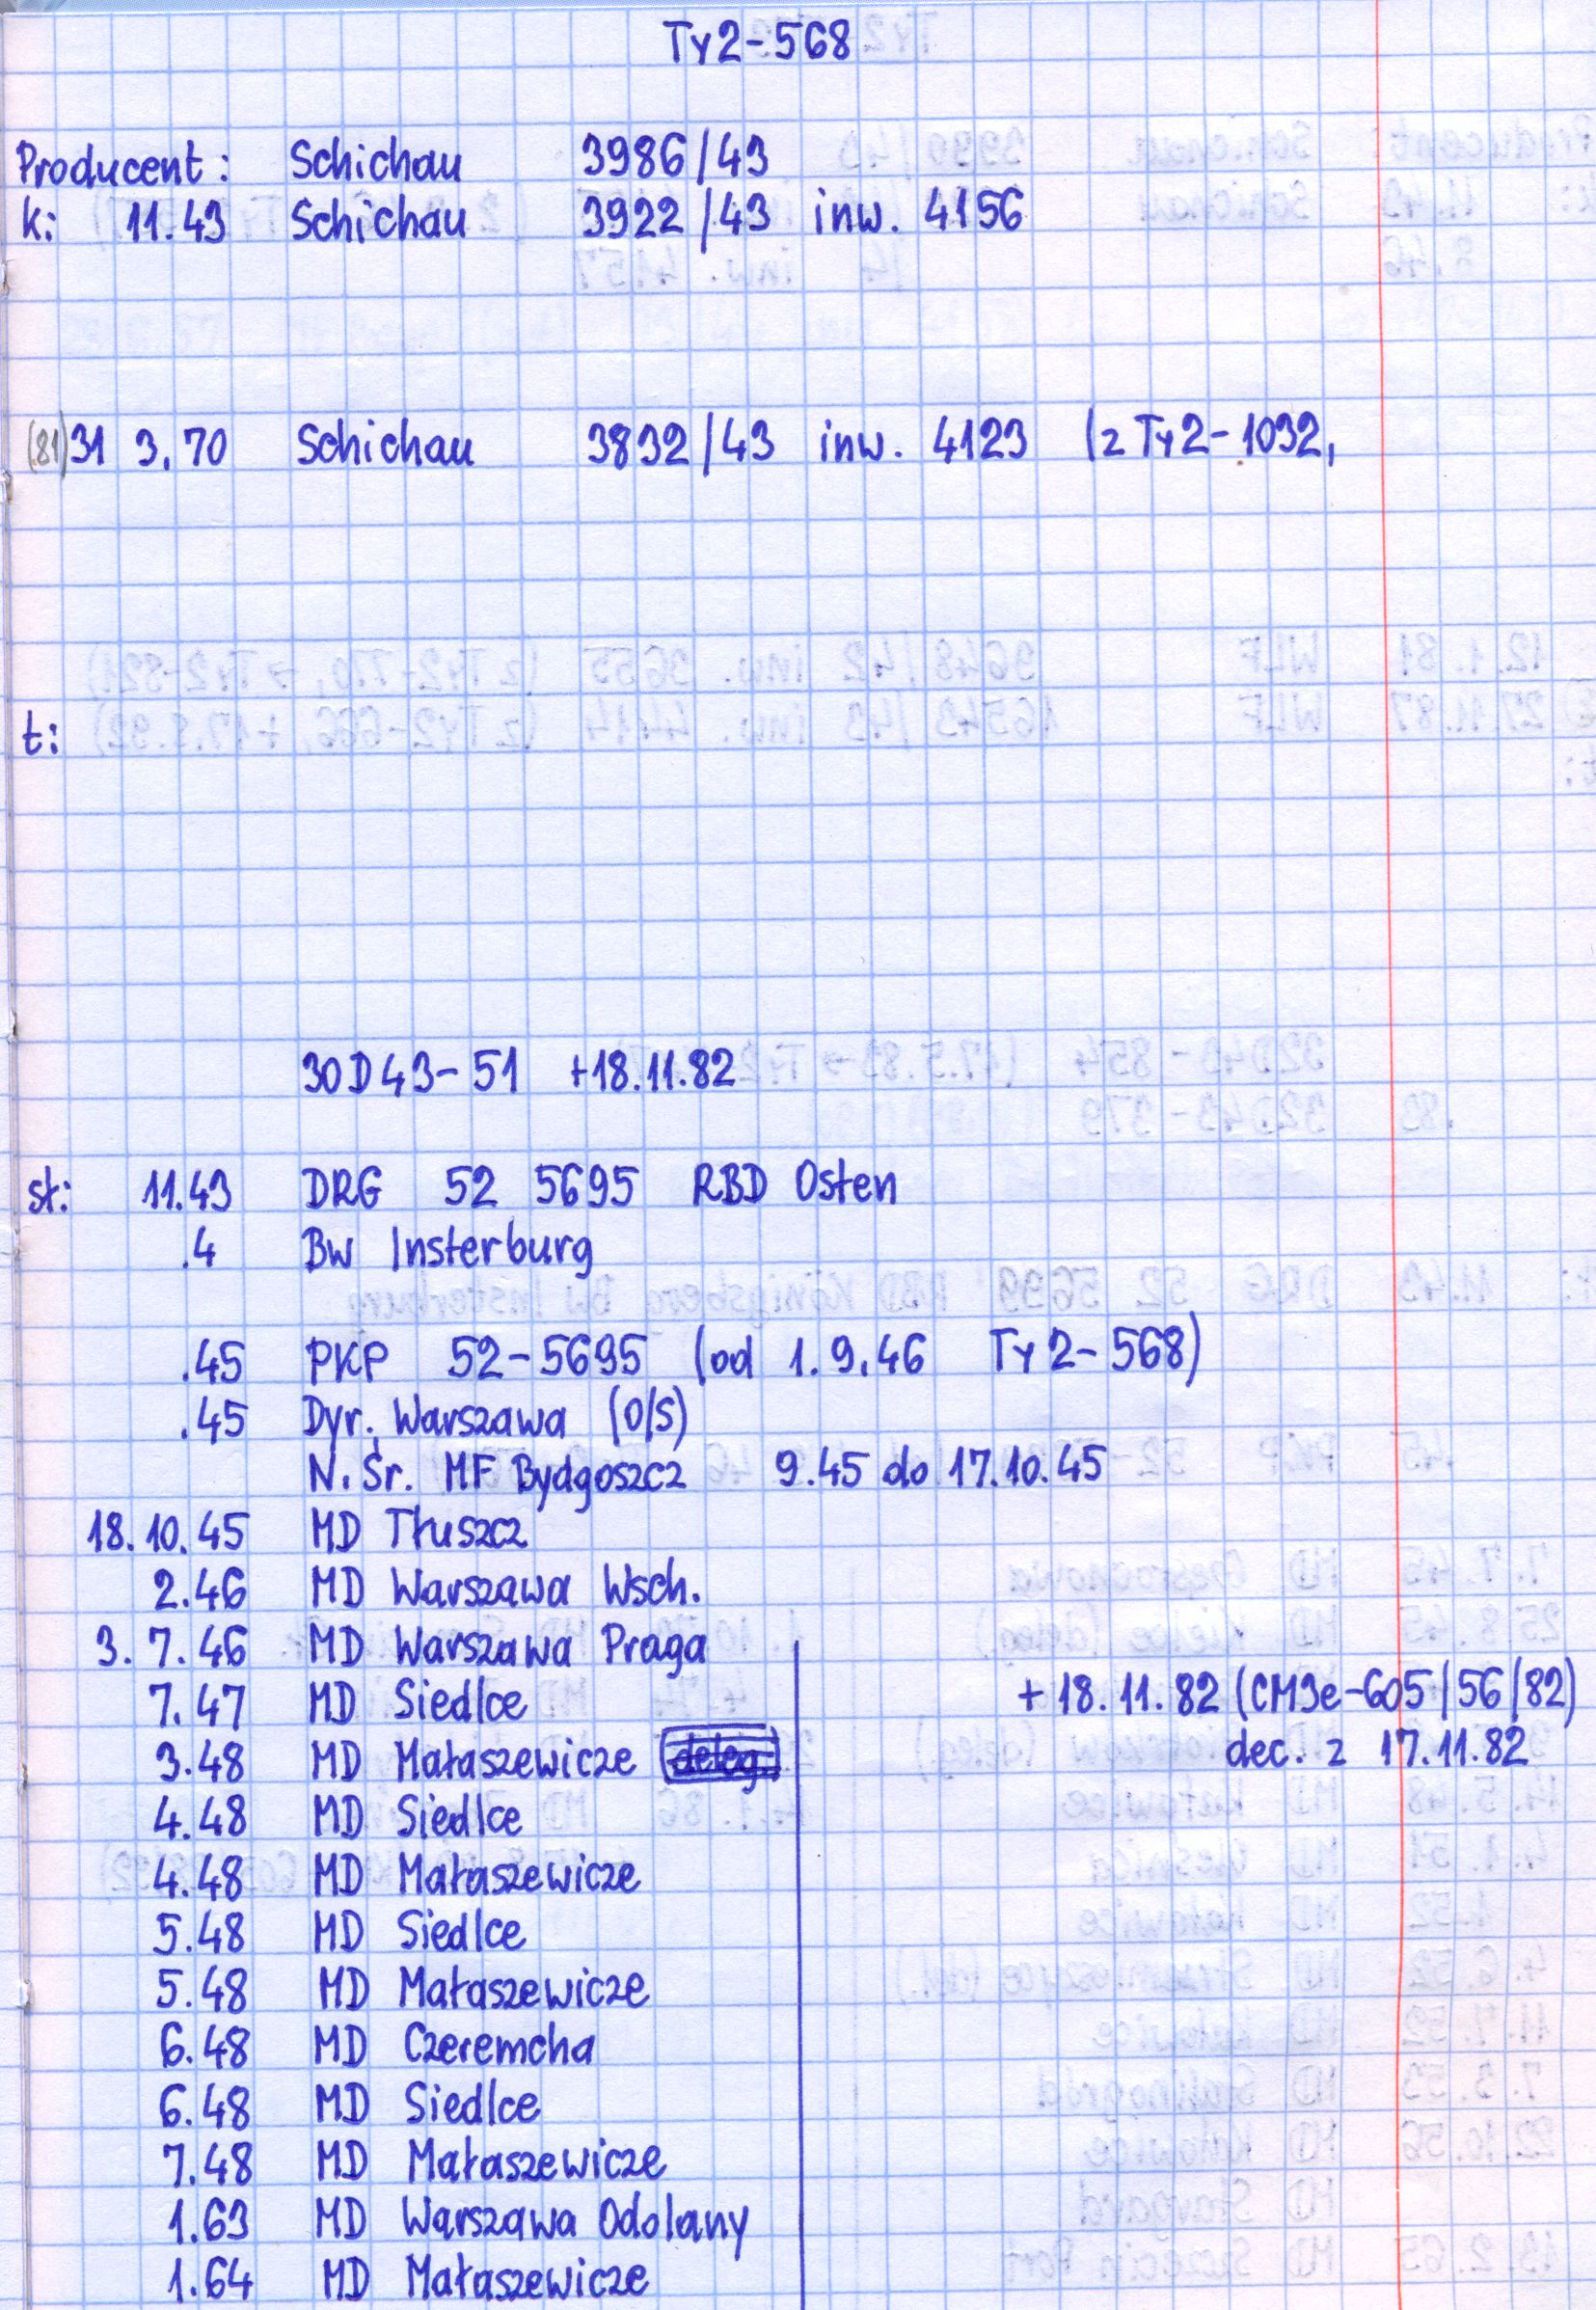 Ty2-568
Producent: Schichau 3986/43
k: 11.43 Schichau 3922/43 inw. 4156
(81) 31 3.70 Schichau 3832/43 inw. 4123 (z Ty2-1032,
t:
30D43-51 +18.11.82
st: 11.43 DRG 52 5695 RBD Osten
.4 Bw Insterburg
.45 PKP 52-5695 (od 1.9.46 Ty2-568)
.45 Dyr. Warszawa (O/S)
N.Śr. MF Bydgoszcz 9.45 do 17.10.45
18.10.45 MD Tłuszcz
2.46 MD Warszawa Wsch.
3.7.46 MD Warszawa Praga
7.47 MD Siedlce
3.48 MD Małaszewicze deleg.
4.48 MD Siedlce
4.48 MD Małaszewicze
5.48 MD Siedlce
5.48 MD Małaszewicze
6.48 MD Czeremcha
6.48 MD Siedlce
7.48 MD Małaszewicze
1.63 MD Warszawa Odolany
1.64 MD Małaszewicze
+18.11.82 (CM3e-605/56/82)
dec. z 17.11.82